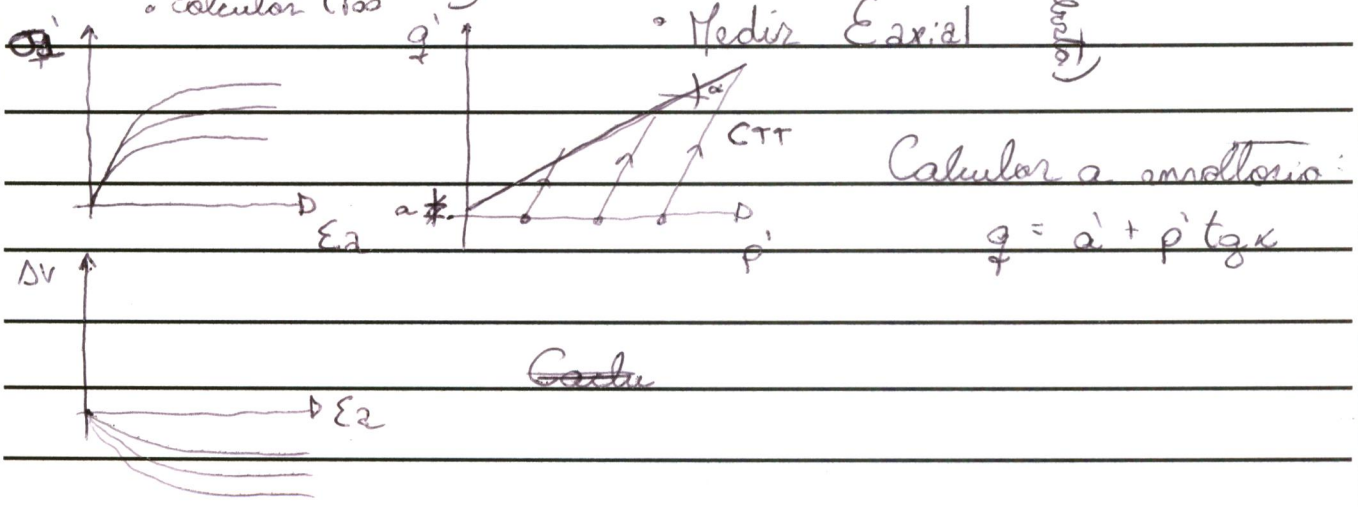 • Calcular
• Medir Eaxial
q'
CTT
α
a
Calcular a envoltória:
εa
p'
q = a' + p' tg α
ΔV
εa